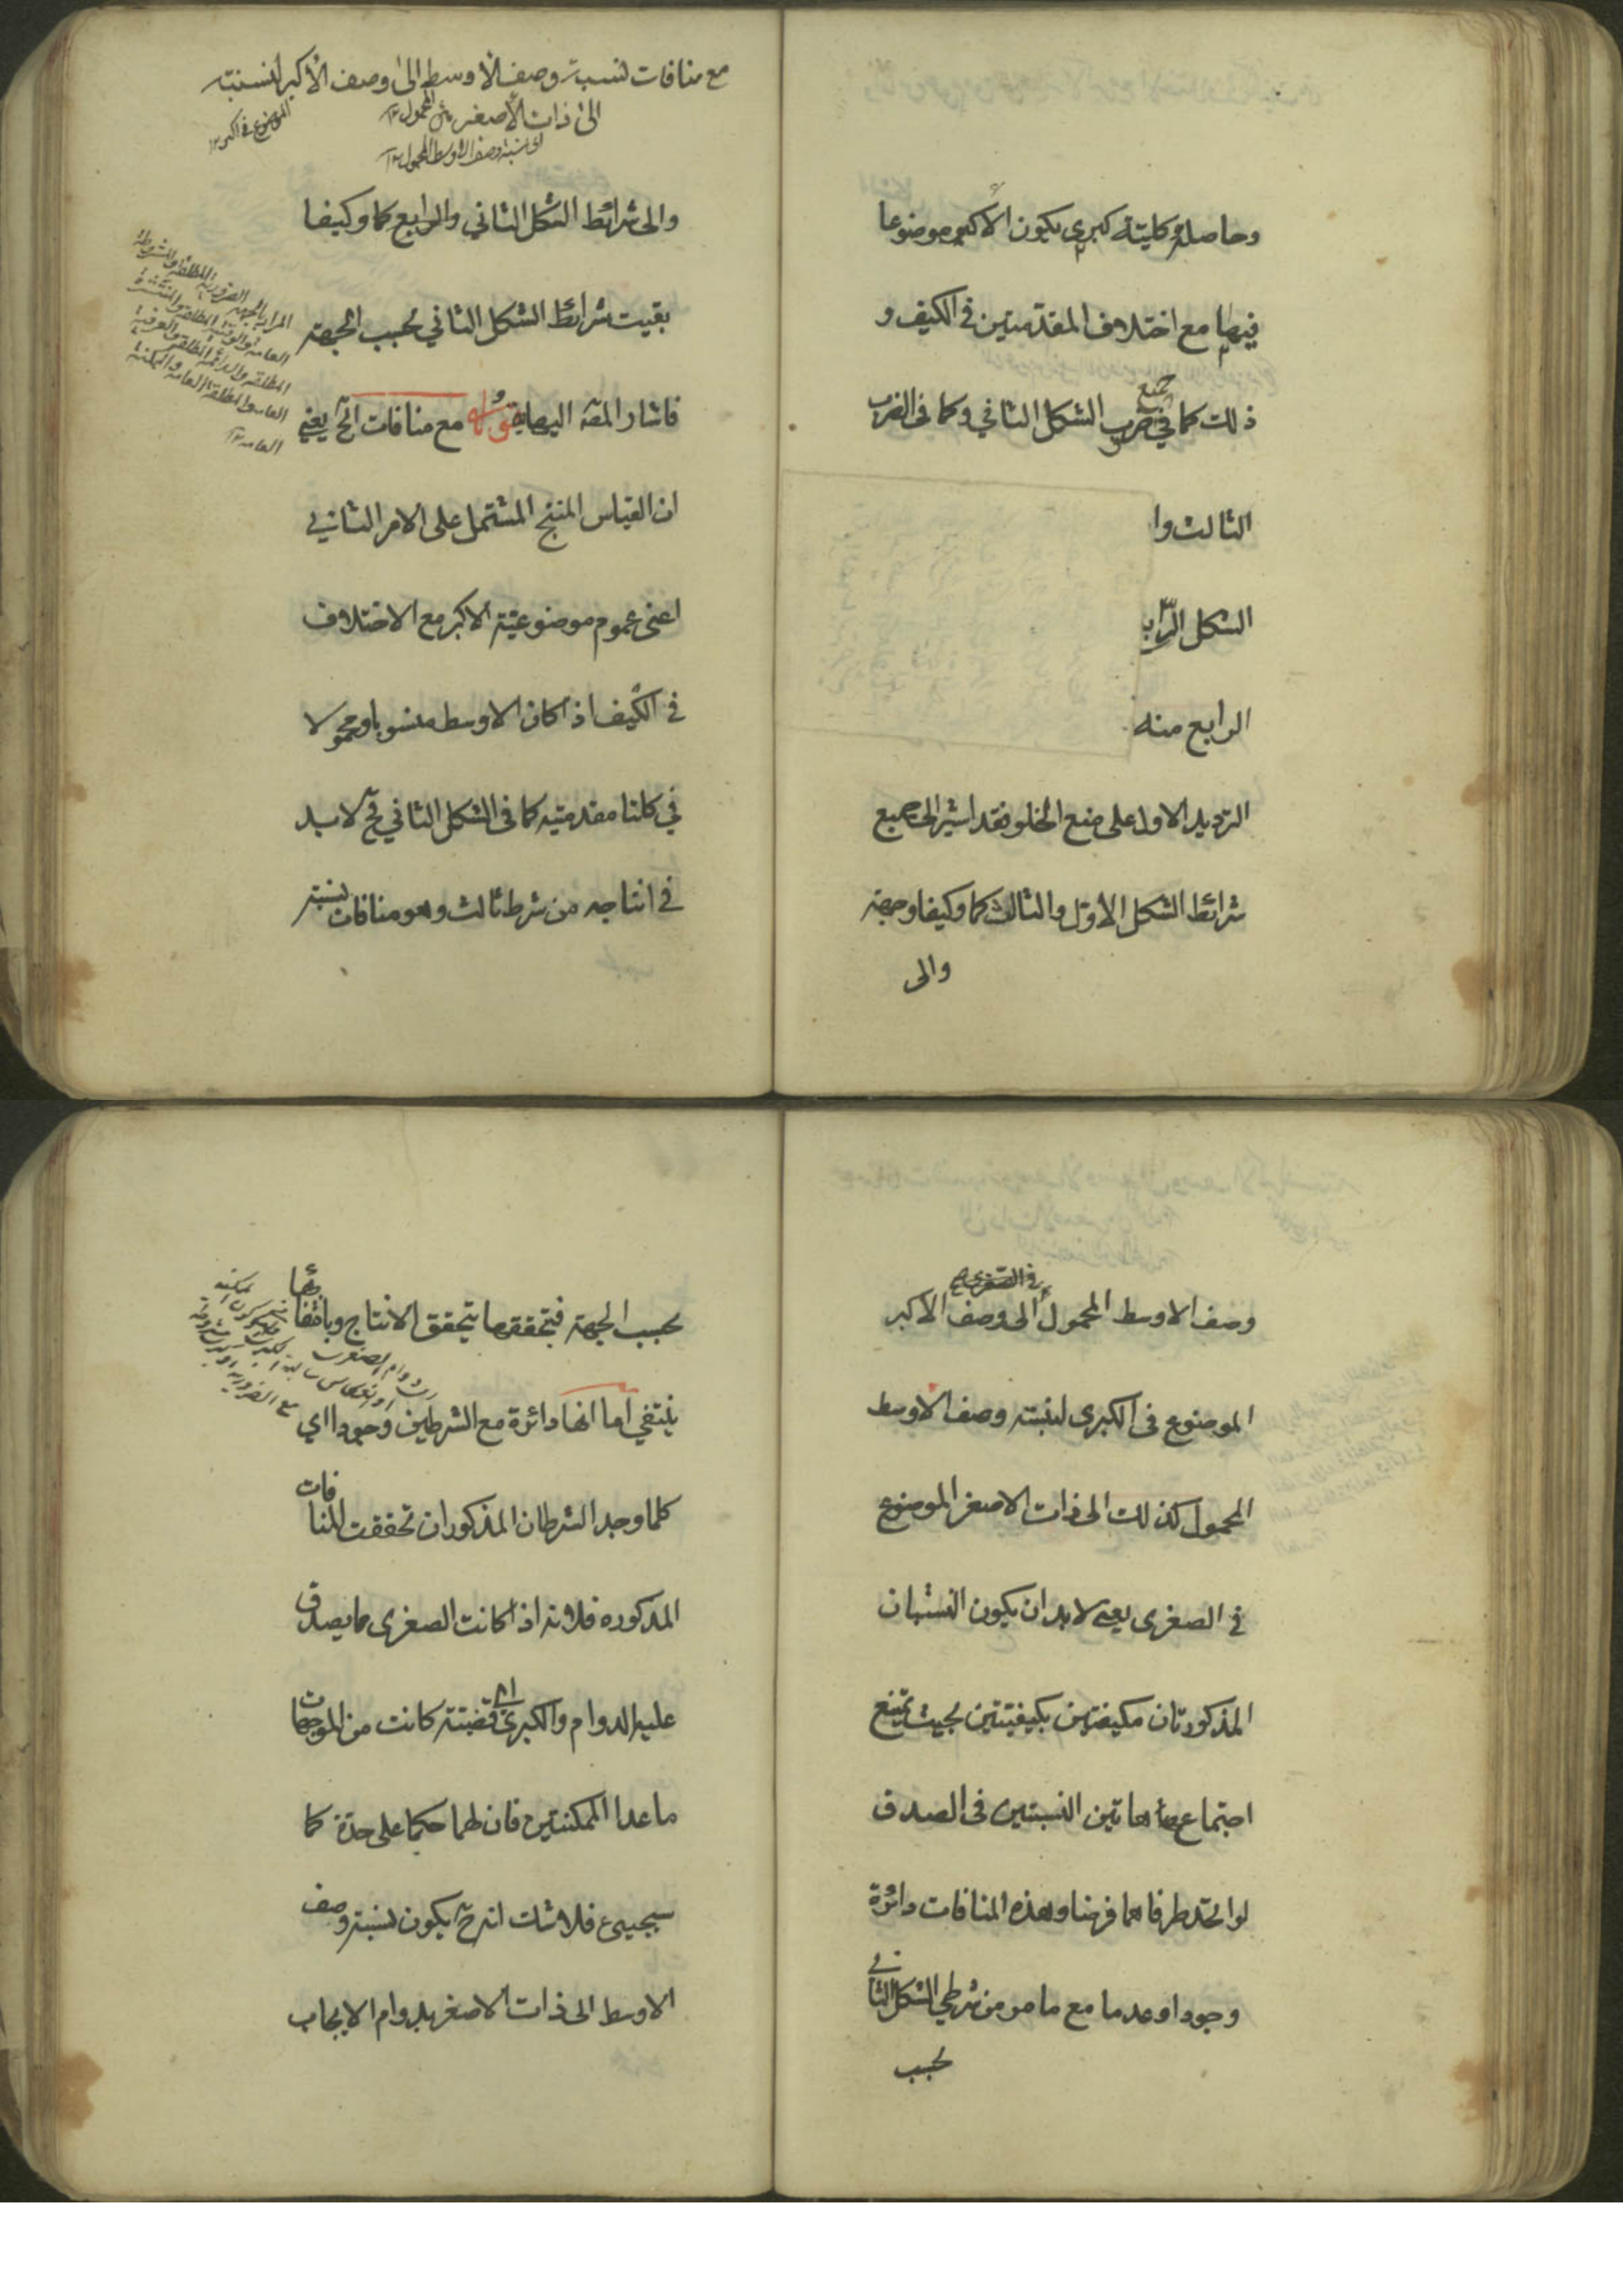 وحاصله كلية كبرى يكون الاكبر موضوعا
فيها مع اختلاف المقدمتين في الكيف و
ذلك كما في جميع ضرب الشكل الثاني وكما في الضرب
الثالث وا
الشكل الراب
الرابع منه
الترديد الاول على منع الخلو فقد اشير الى جميع
شرائط الشكل الاول والثالث كما وكيفا وجهة
والى
مع منافات نسبة وصف الاوسط الى وصف الاكبر لنسبته
الى ذات الاصغر
الموضوع في اكبر ١٢
او نسبة وصف الاوسط المحمول ١٢
والى شرائط الشكل الثاني والرابع كما وكيفا
بقيت شرائط الشكل الثاني بحسب الجهة
فاشار المصه اليها بقوله مع منافات الخ يعني
ان القياس المنتج المشتمل على الامر الثاني
اعنى عموم موضوعية الاكبر مع الاختلاف
في الكيف اذا كان الاوسط منسوبا ومحمولا
في كلتا مقدمتيه كما في الشكل الثاني فح لا بد
في انتاجه من شرط ثالث وهو منافات نسبة
المراد بالجهة الضرورية المطلقة والمشروطة
العامة والوقتية المطلقة والمنتشرة
المطلقة والدائمة المطلقة والعرفية
العامة والمطلقة العامة والممكنة
العامة ١٢
في الصغرى
وصف الاوسط المحمول الى وصف الاكبر
الموضوع في الكبرى لنسبة وصف الاوسط
المحمول كذلك الى ذات الاصغر الموضوع
في الصغرى يعني لا بد ان يكون النسبتان
المذكورتان مكيفتين بكيفيتين بحيث يمتنع
اجتماع هاتين النسبتين في الصدق
لو اتحد طرفاهما فرضا وهذه المنافات دائرة
وجودا وعدما مع ما مر من شرطي الشكل الثاني
بحسب
بحسب الجهة فبتحققهما يتحقق الانتاج وبانتفائهما
ينتفي اما انها دائرة مع الشرطين وجودا اي
كلما وجد الشرطان المذكوران تحققت المنافات
المذكوره فلانه اذا كانت الصغرى مما يصدق
عليه الدوام والكبرى اي قضية كانت من الموجهات
ما عدا الممكنتين فان لهما حكما على حدة كما
سيجيء فلا شك انه ح يكون نسبة وصف
الاوسط الى ذات الاصغر بدوام الايجاب